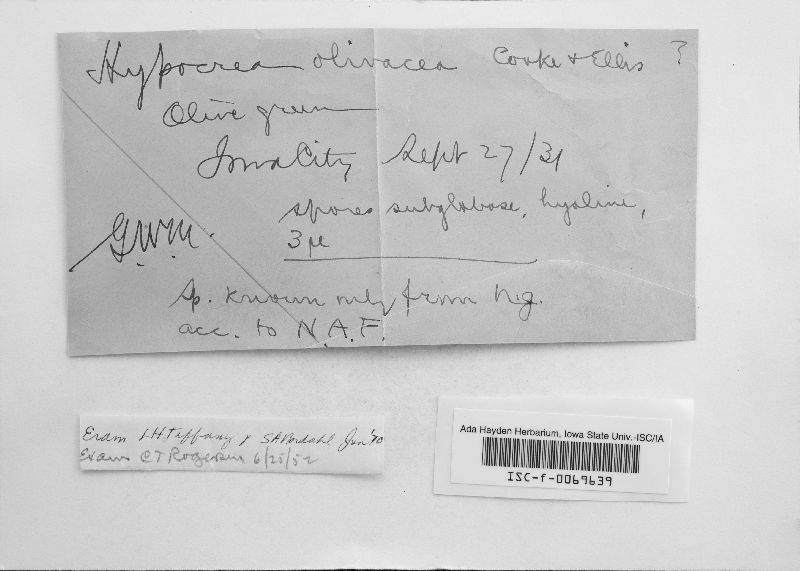 Hypocrea olivacea Cooke & Ellis ?
Olive green
Iowa City Sept 27/31
spores subglobose, hyaline,
3µ
G.W.M.
Sp. known only from N.J.
acc. to N.A.F.
Exam LHTiffany & SA Nordahl Jun '70
Exam CT Rogerson 6/25/52
Ada Hayden Herbarium, Iowa State Univ.-ISC/IA
ISC-f-0069639